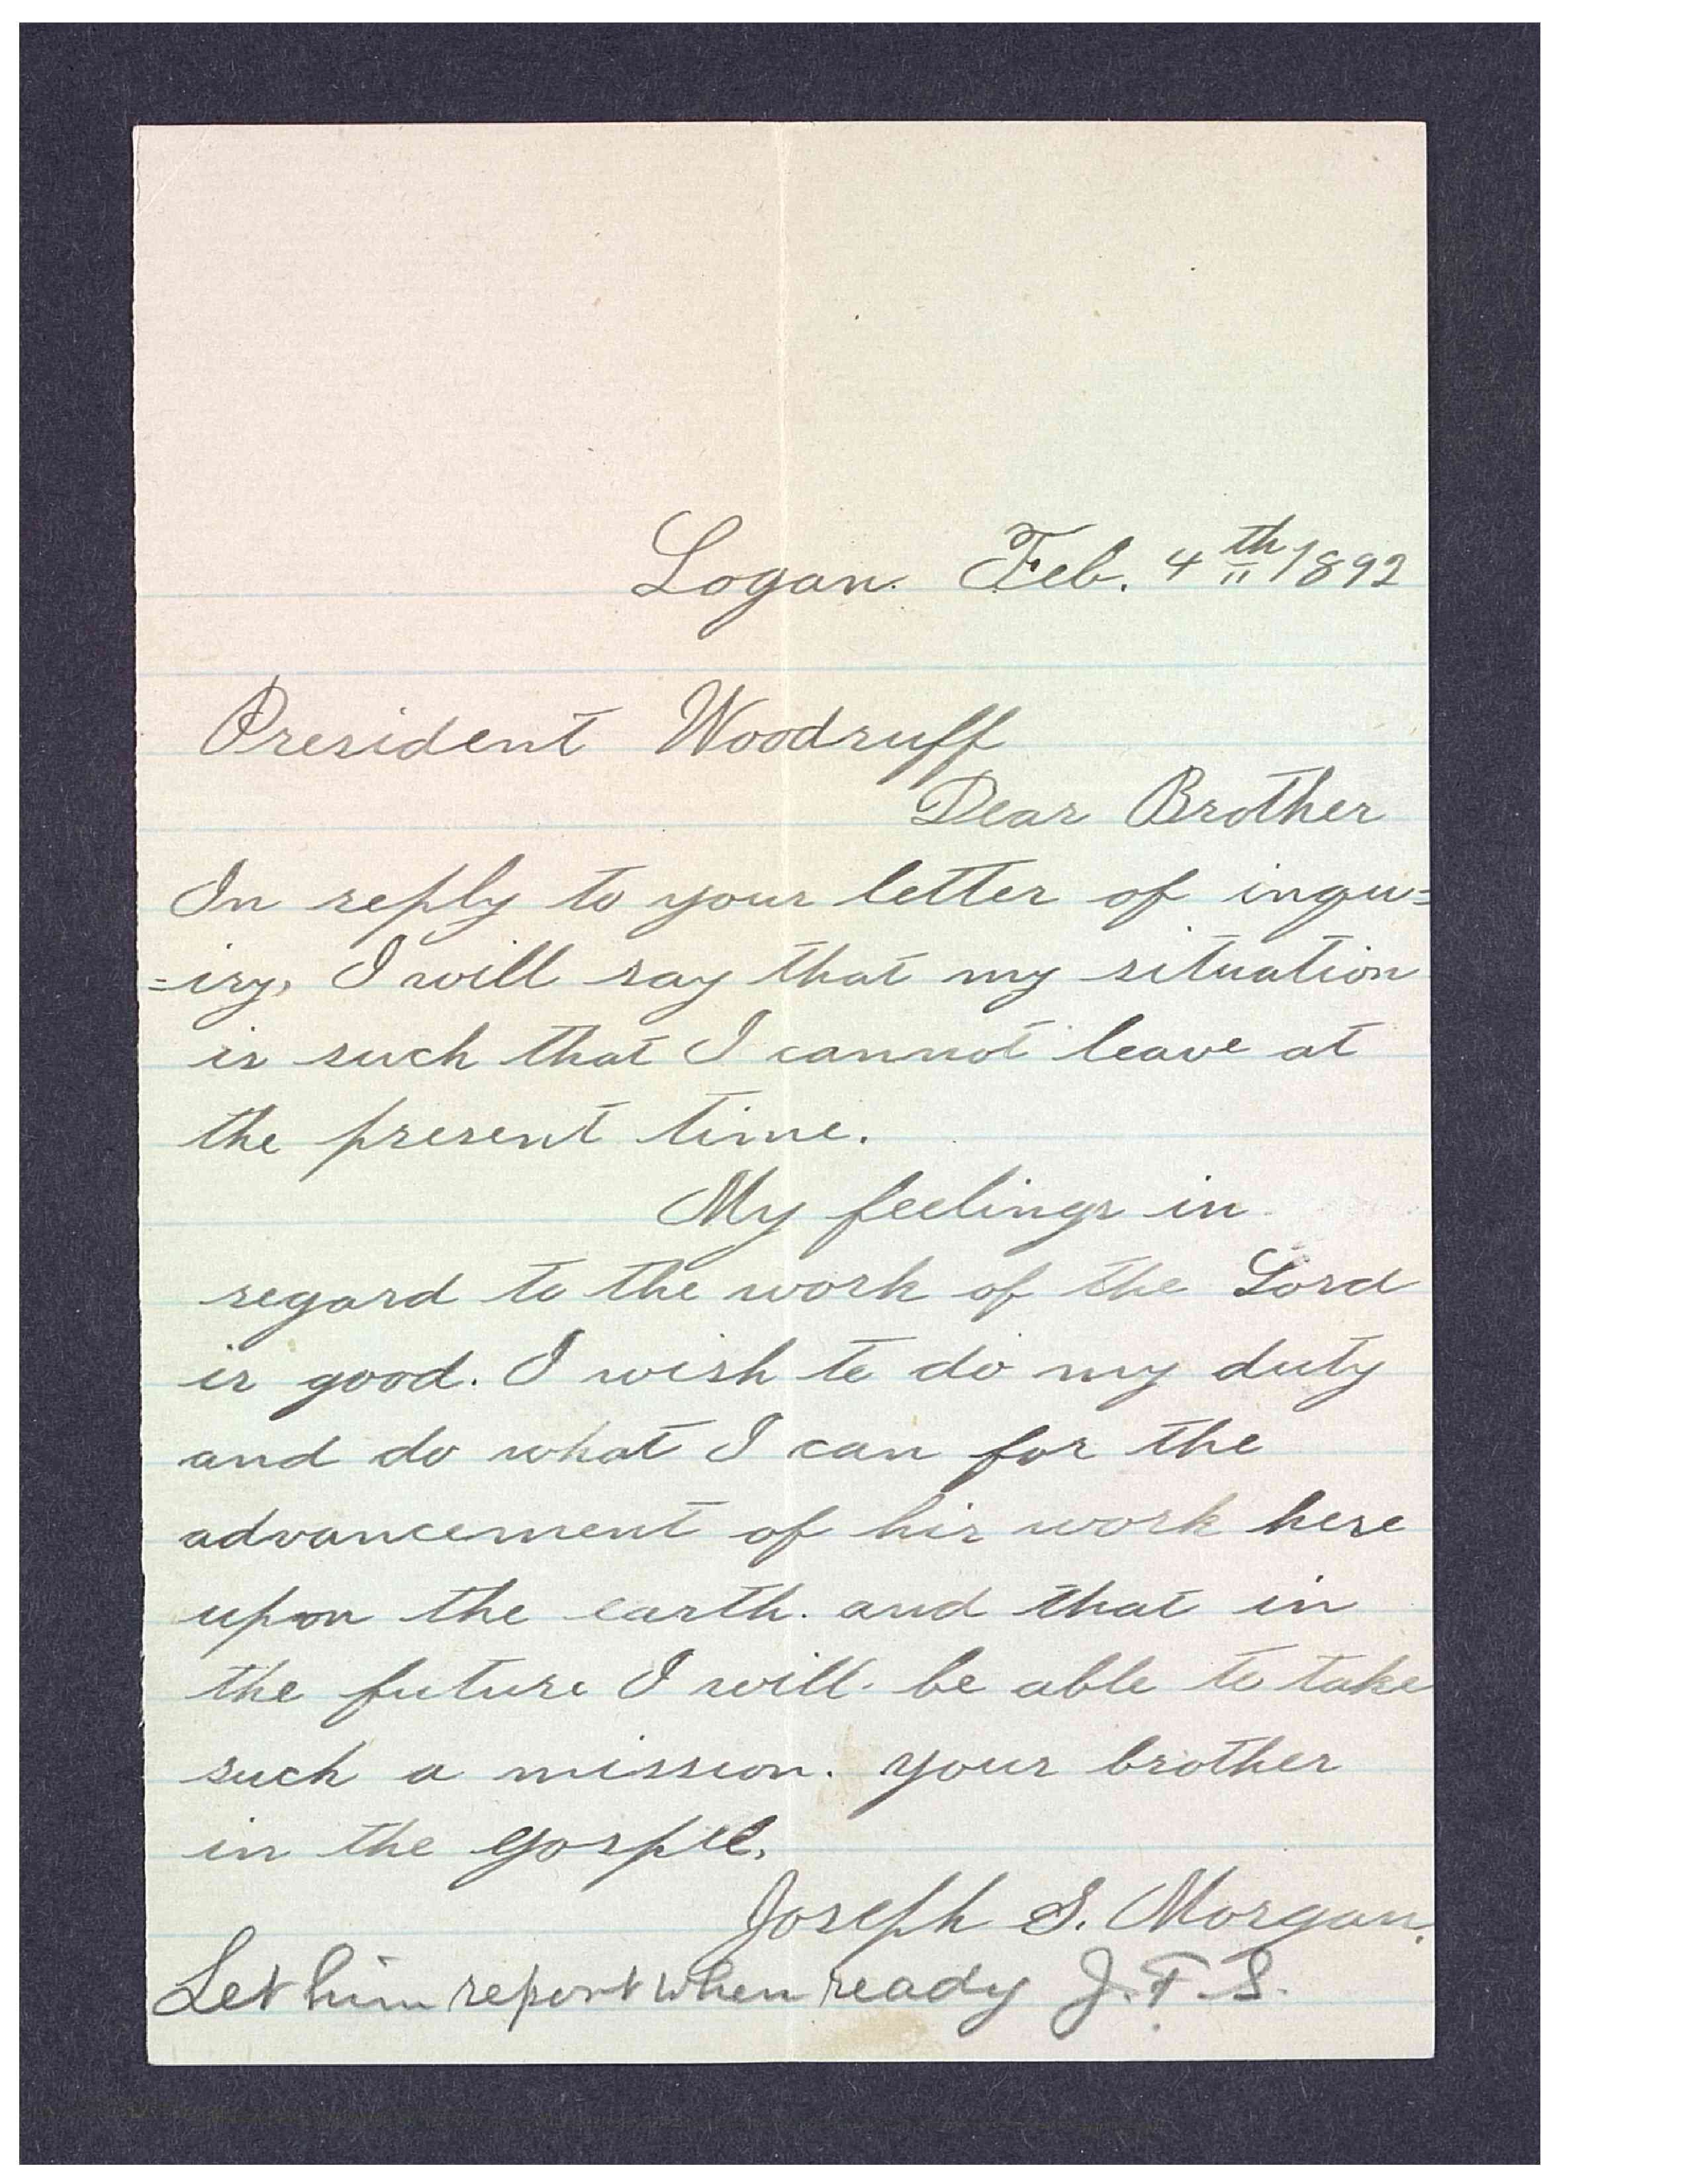 Logan. Feb. 4th 1892
President Woodruff
Dear Brother
In reply to your letter of inqu=
=iry, I will say that my situation
is such that I cannot leave at
the present time.
My feelings in
regard to the work of the Lord
is good. I wish to do my duty
and do what I can for the
advancement of his work here
upon the earth. and that in
the future I will be able to take
such a mission. your brother
in the gospel.
Joseph S. Morgan.
Let him report when ready J. F. S.